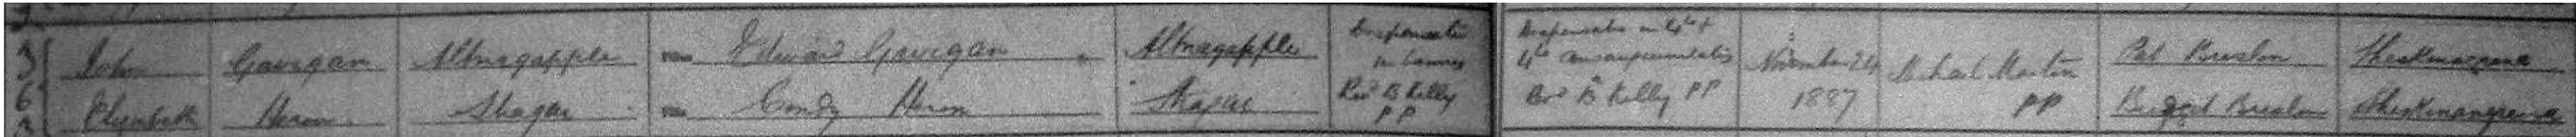 3 John Gavigan Altnagapple Edward Gavigan Altnagapple Dispensation in banns Dispensation in 4th + November 24 Michael Martin Pat Breslin
6 Elizabeth Heron Shagar Condy Heron Rev B Kelly 4th 1887 PP Bridget Breslin
PP Rev B Kelly PP